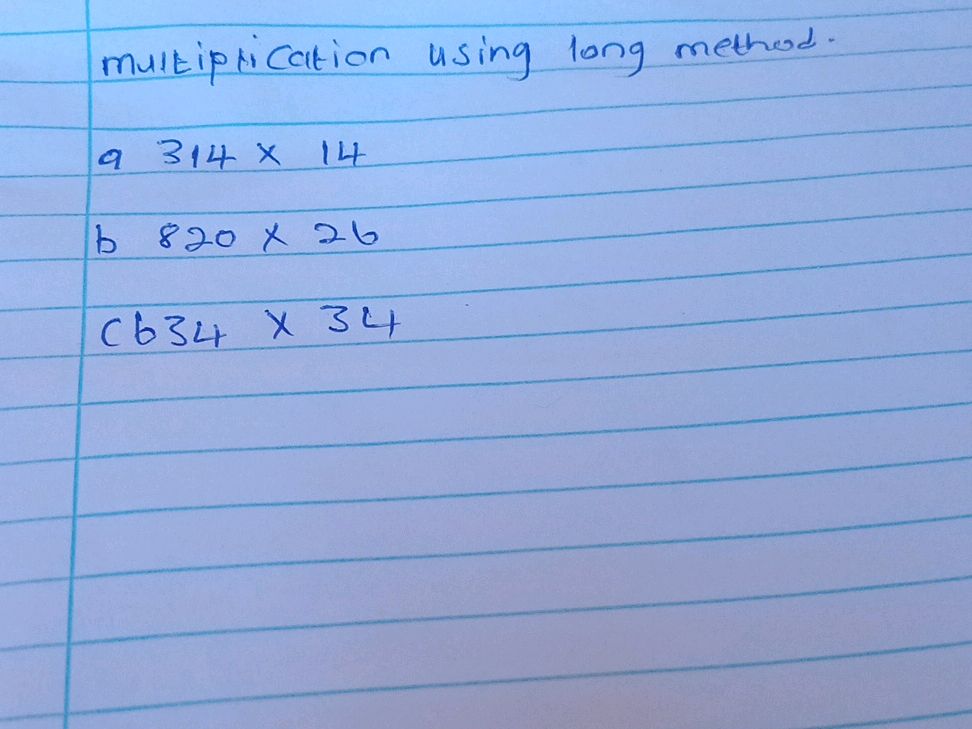 multiplication using long method.
a 314 x 14
b 820 x 26
c 634 x 34